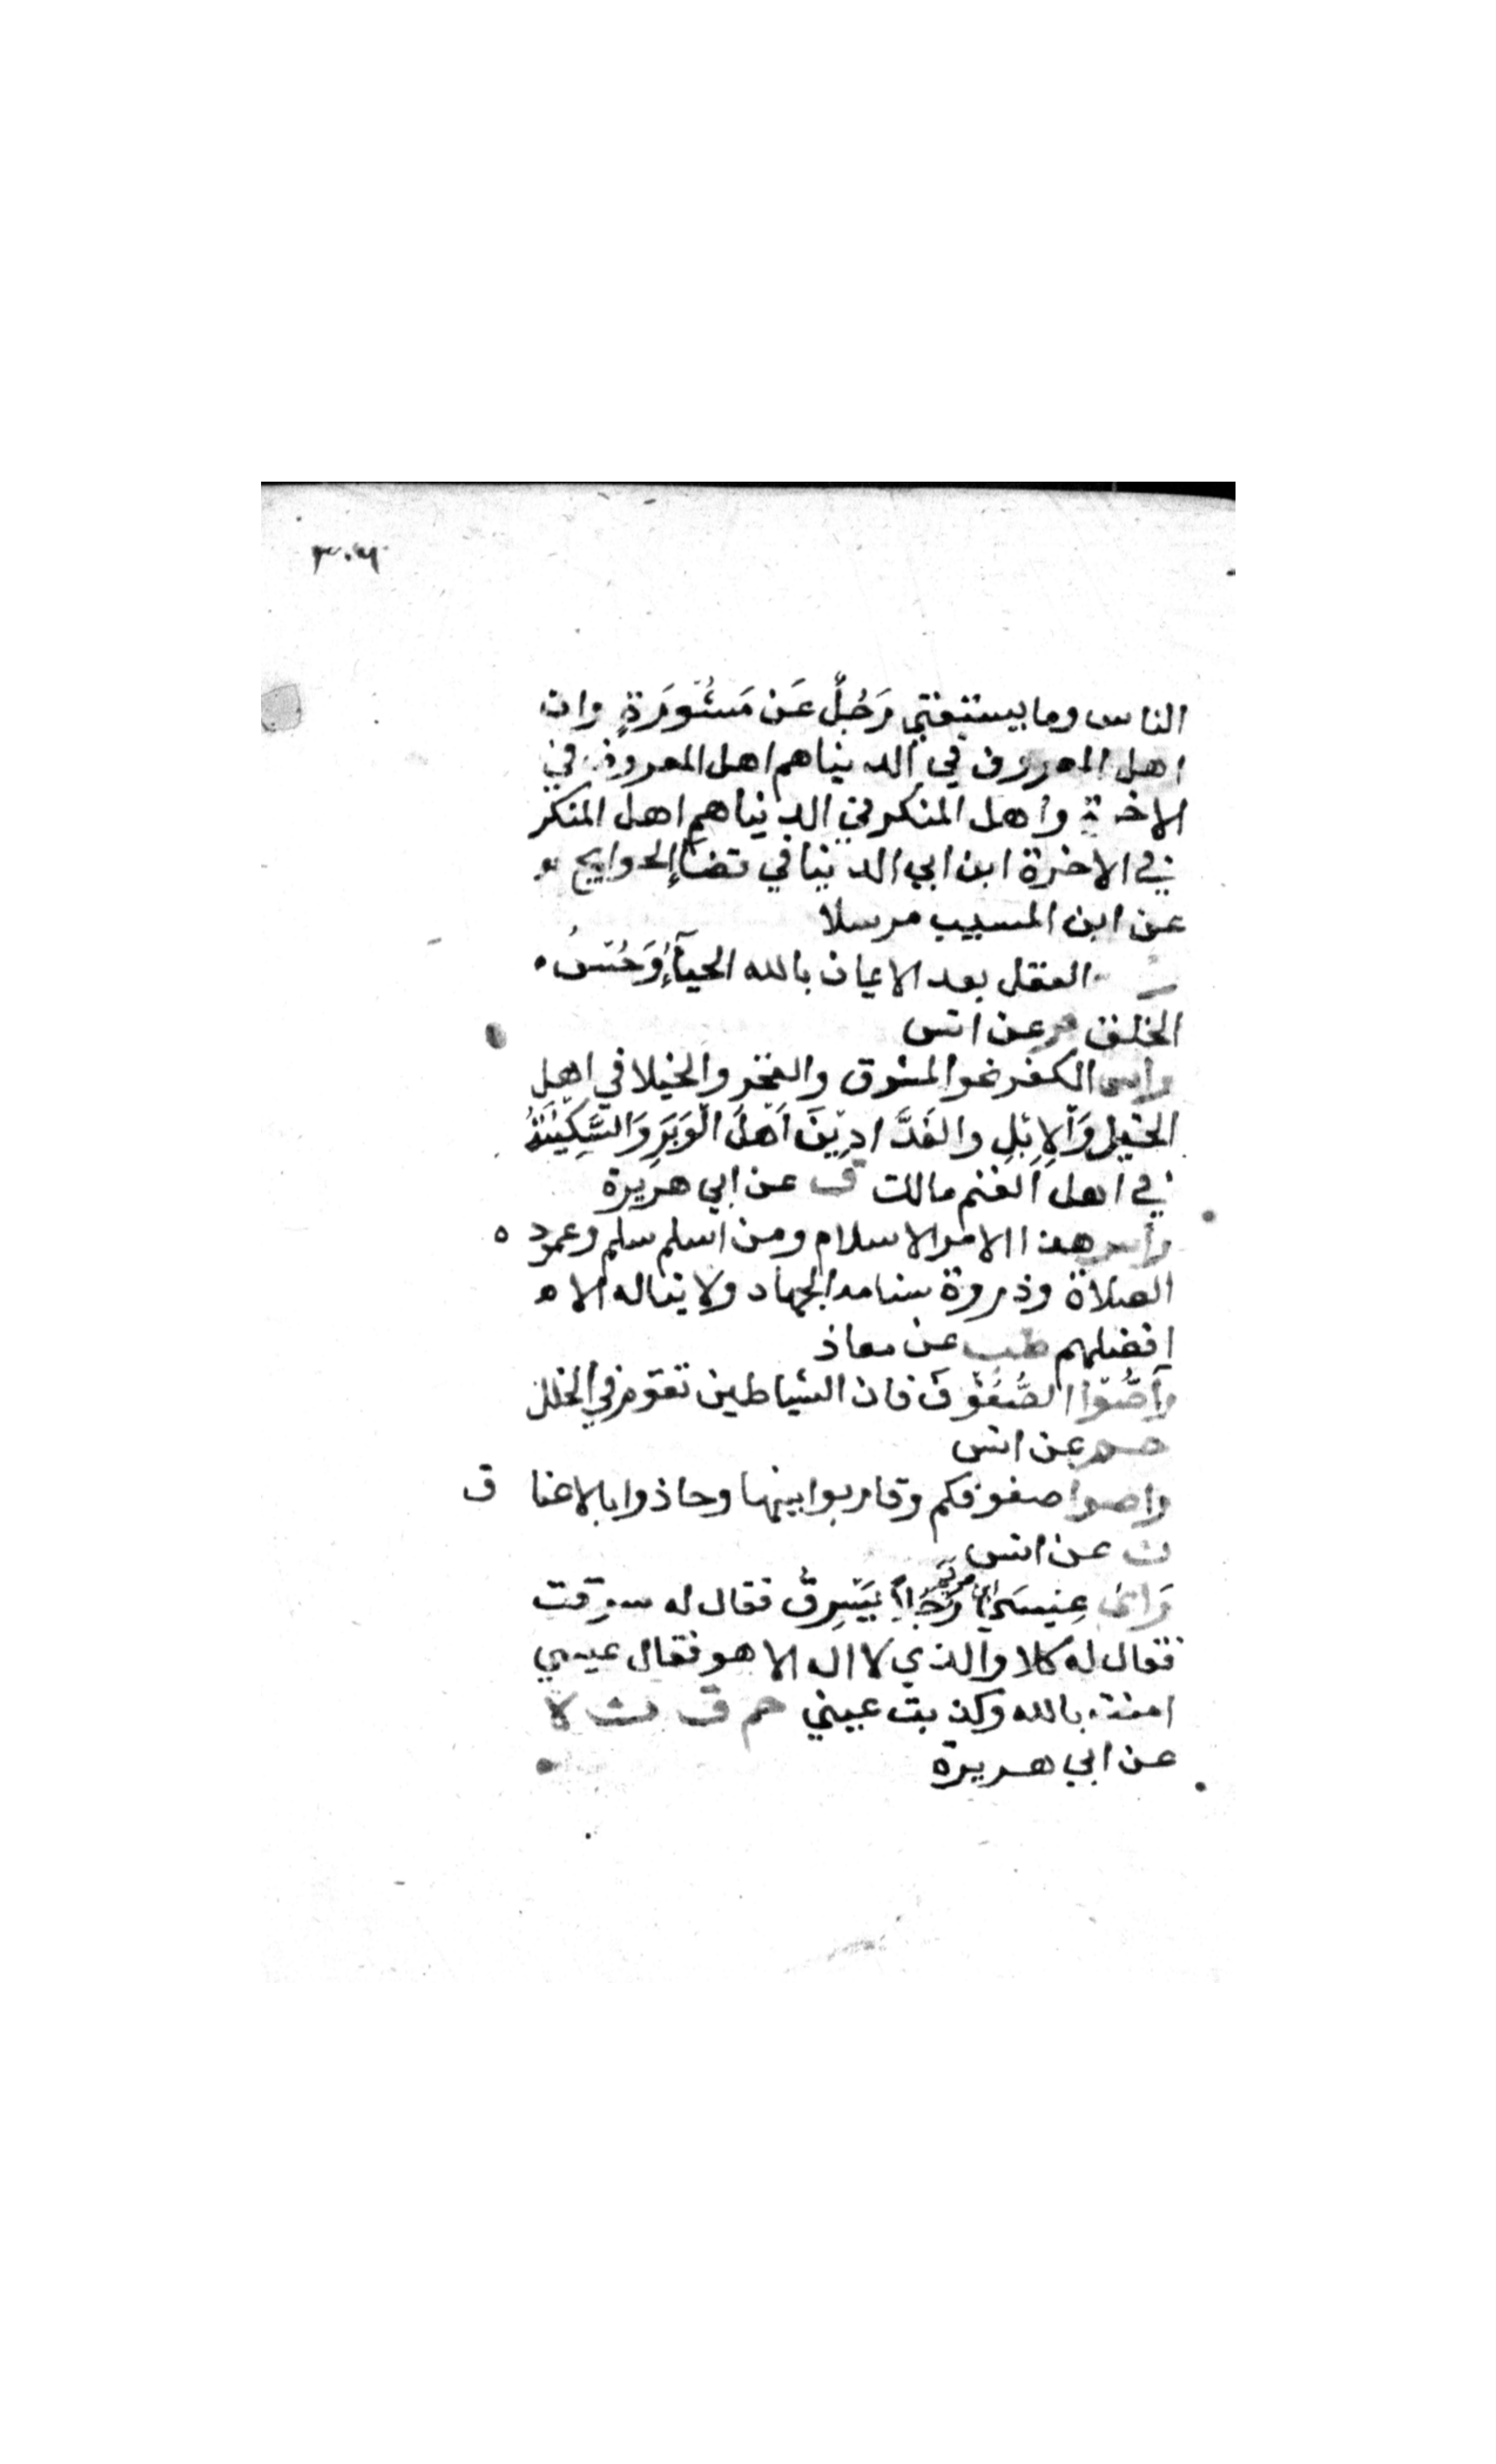 ٣٠٦
الناس وما يستغني رَجُلٌ عَن مَشُورَةٍ وان
اهل المعروف في الدنيا هم اهل المعروف في
الاخرة واهل المنكر في الدنيا هم اهل المنكر
في الاخرة ابن ابي الدنيا في قضاإ لحوايج
عن ابن المسيب مرسلا
العقل بعد الايمان بالله الحيآءُ وَحُسْنُ
الخلق فر عن انس
راس الكفر نحو المشرق والفخر والخيلا في اهل
الخيل وَالإبل والفَدَّادِينَ اَهْلَ الْوَبَرِ وَالسَّكِيْنَةُ
في اهل الغنم مالك ق عن ابي هريرة
رأس هذا الامر الاسلام ومن اسلم سلم وعموده
الصلاة وذروة سنامه الجهاد ولا يناله الا
افضلهم طب عن معاذ
رَاصُّوا الصُّفُوْفَ فان الشياطين تقوم في الخلل
حم عن انس
راصوا صفوفكم وقاربوا بينها وحاذوا بالاعناق
ن عن انس
رَايَ عِيسَى ابن مريم رَجُلًا يَسْرِقُ فقال له سرقت
فقال له كلا والذي لا اله الا هو فقال عيسي
امنت بالله وكذبت عيني حم ق ن لا
عن ابي هريرة